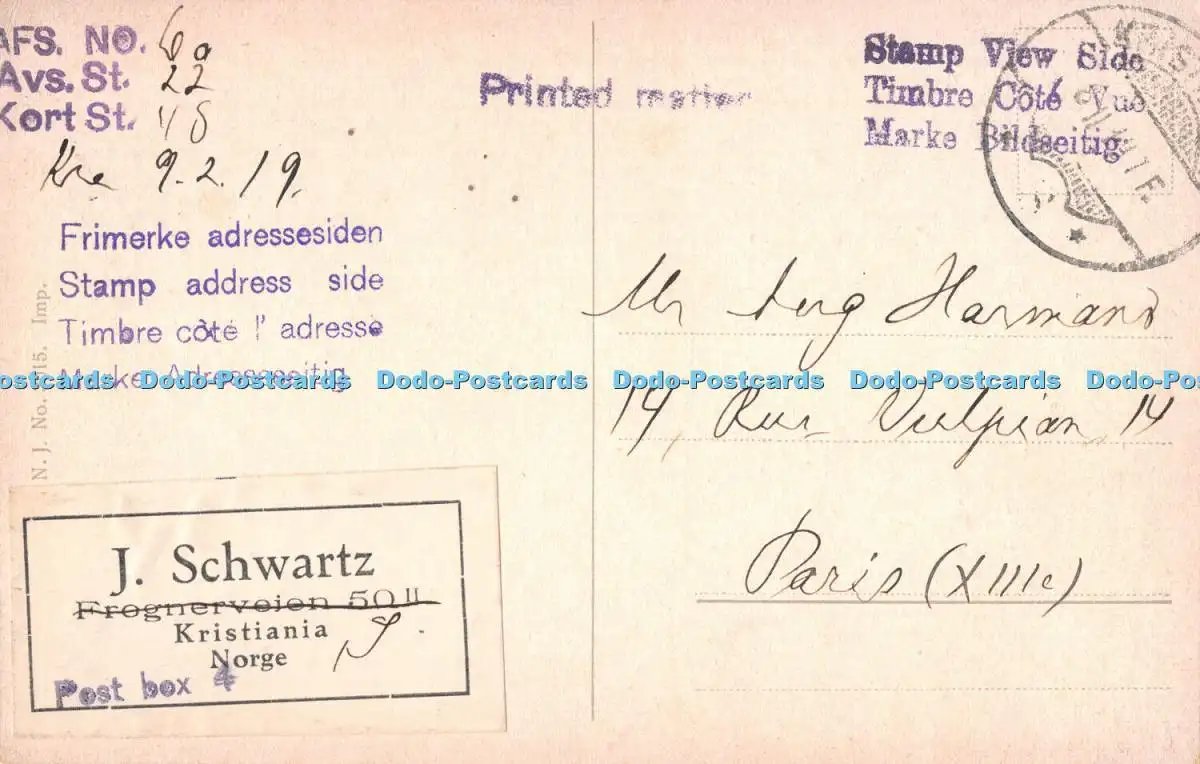 AFS. NO. 60
Avs. St. 22
Kort St. 48
Kra 9.2.19.
Printed matter
Stamp View Side
Timbre Côté Vue
Marke Bildseitig
Frimerke adressesiden
Stamp address side
Timbre côté l' adresse
Marke Adresseseitig
N. J. No. 15. Imp.
Mr Harmand
14, Rue Vulpian 14
Paris (XIIIe)
J. Schwartz
Frognerveien 50 II
Kristiania
Norge
Post box 4
ostcards Dodo-Postcards Dodo-Postcards Dodo-Postcards Dodo-Postcards Dodo-Post